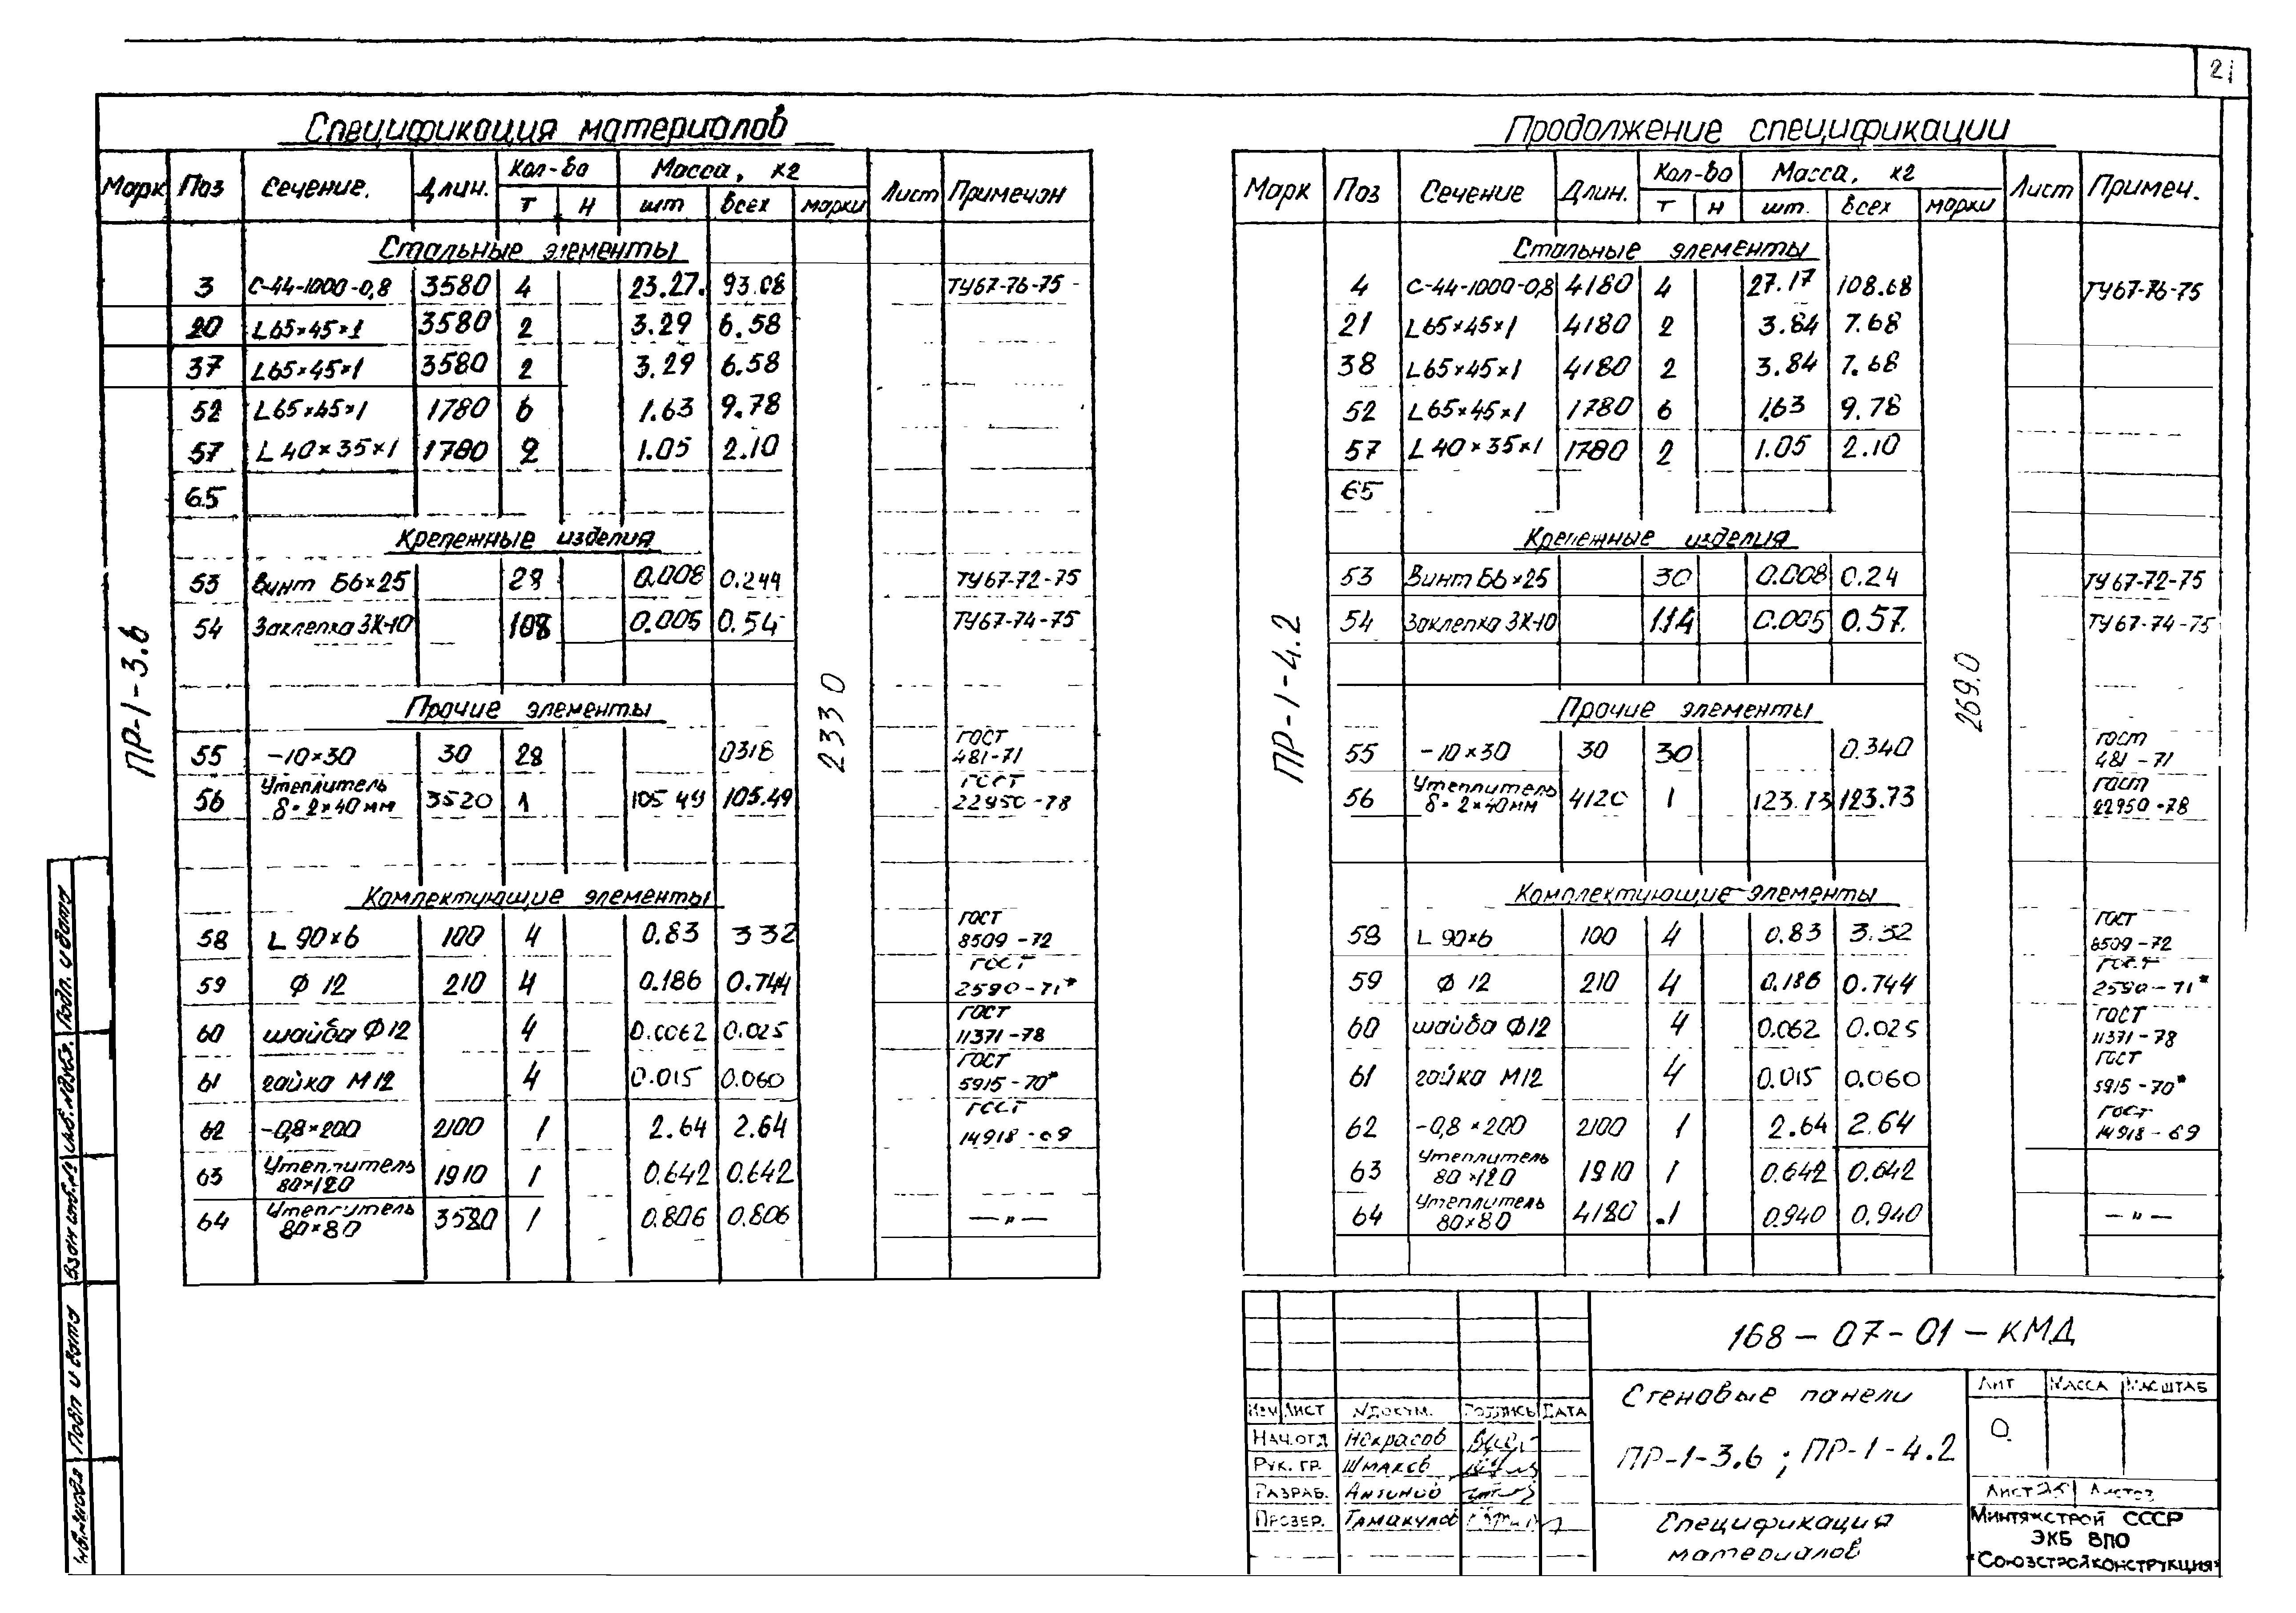 21
Спецификация материалов
Марк Поз Сечение. Длин. Кол-во Масса, кг Лист Примечан
т н шт всех марки
Стальные элементы
3 С-44-1000-0,8 3580 4 23.27. 93.08 ТУ67-76-75
20 L65×45×1 3580 2 3.29 6.58
37 L65×45×1 3580 2 3.29 6.58
52 L65×45×1 1780 6 1.63 9.78
57 L40×35×1 1780 2 1.05 2.10
65
Крепежные изделия
53 Винт Б6×25 28 0.008 0.244 ТУ67-72-75
54 Заклепка ЗК-10 108 0.005 0.54 ТУ67-74-75
ПР-1-3.6
2330
Прочие элементы
55 -10×30 30 28 0318 ГОСТ 481-71
56 Утеплитель δ=2×40мм 3520 1 105 49 105.49 ГОСТ 22950-78
Комплектующие элементы
58 L 90×6 100 4 0.83 3 32 ГОСТ 8509-72
59 Ф 12 210 4 0.186 0.744 ГОСТ 2590-71*
60 шайба Ф12 4 0.0062 0.025 ГОСТ 11371-78
61 гайка М12 4 0.015 0.060 ГОСТ 5915-70*
62 -0,8×200 2100 1 2.64 2.64 ГОСТ 14918-69
63 Утеплитель 80×120 1910 1 0.642 0.642
64 Утеплитель 80×80 3580 1 0.806 0.806 — „ —
Продолжение спецификации
Марк Поз Сечение Длин. Кол-во Масса, кг Лист Примеч.
т н шт. всех марки
Стальные элементы
4 С-44-1000-0,8 4180 4 27.17 108.68 ТУ67-76-75
21 L65×45×1 4180 2 3.84 7.68
38 L65×45×1 4180 2 3.84 7.68
52 L65×45×1 1780 6 1.63 9.78
57 L40×35×1 1780 2 1.05 2.10
65
Крепежные изделия
53 Винт Б6×25 30 0.008 0.24 ТУ67-72-75
54 Заклепка ЗК-10 114 0.005 0.57. ТУ67-74-75
ПР-1-4.2
269.0
Прочие элементы
55 -10×30 30 30 0.340 ГОСТ 481-71
56 Утеплитель δ=2×40мм 4120 1 123.73 123.73 ГОСТ 22950-78
Комплектующие элементы
58 L 90×6 100 4 0.83 3.32 ГОСТ 8509-72
59 Ф 12 210 4 0.186 0.744 ГОСТ 2590-71*
60 шайба Ф12 4 0.062 0.025 ГОСТ 11371-78
61 гайка М12 4 0.015 0.060 ГОСТ 5915-70*
62 -0,8×200 2100 1 2.64 2.64 ГОСТ 14918-69
63 Утеплитель 80×120 1910 1 0.642 0.642
64 Утеплитель 80×80 4180 1 0.940 0.940 — „ —
168-07-01-КМД
Стеновые панели
ПР-1-3.6; ПР-1-4.2
Лит Масса Масштаб
О
Изм Лист №докум. Подпись Дата
Нач.отд Некрасов
Рук. гр. Шмаков
Разраб.
Провер.
Лист Листов
Спецификация
материалов
Минтяжстрой СССР
ЭКБ ВПО
"Союзстройконструкция"
Подп. и дата
Инв.№дубл.
Взам инв.№
Подп и дата
Инв.№подл